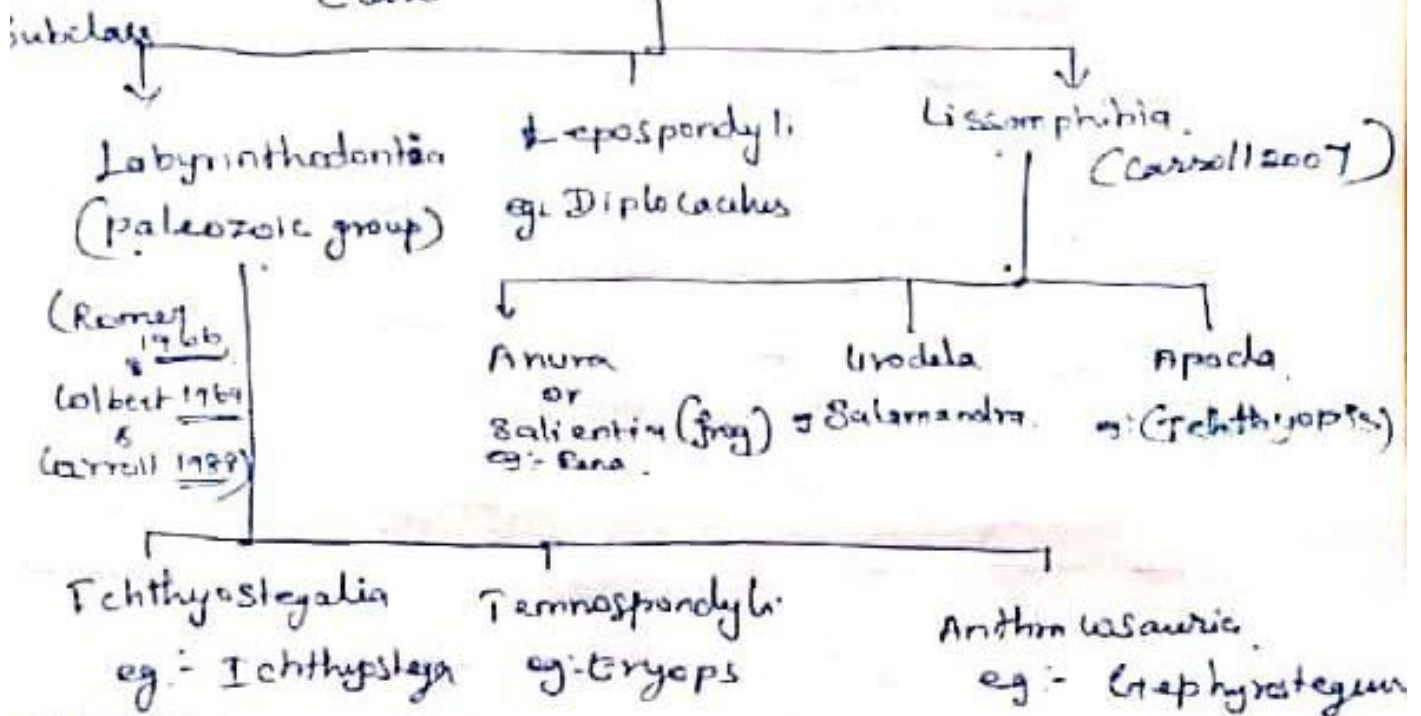 Subclass
Labyrinthodontia
(paleozoic group)
(Romer
1966
&
Colbert 1969
&
Carroll 1988)
Lepospondyli
eg: Diplocaulus
Lissamphibia.
(Carroll 2007)
Anura
or
Salientia (frog)
eg:- Rana.
Urodela
eg Salamandra.
Apoda
eg: (Ichthyopis)
Ichthyostegalia
eg:- Ichthyostega
Temnospondyli
eg:- Eryops
Anthracosauria
eg:- Gephyrostegus